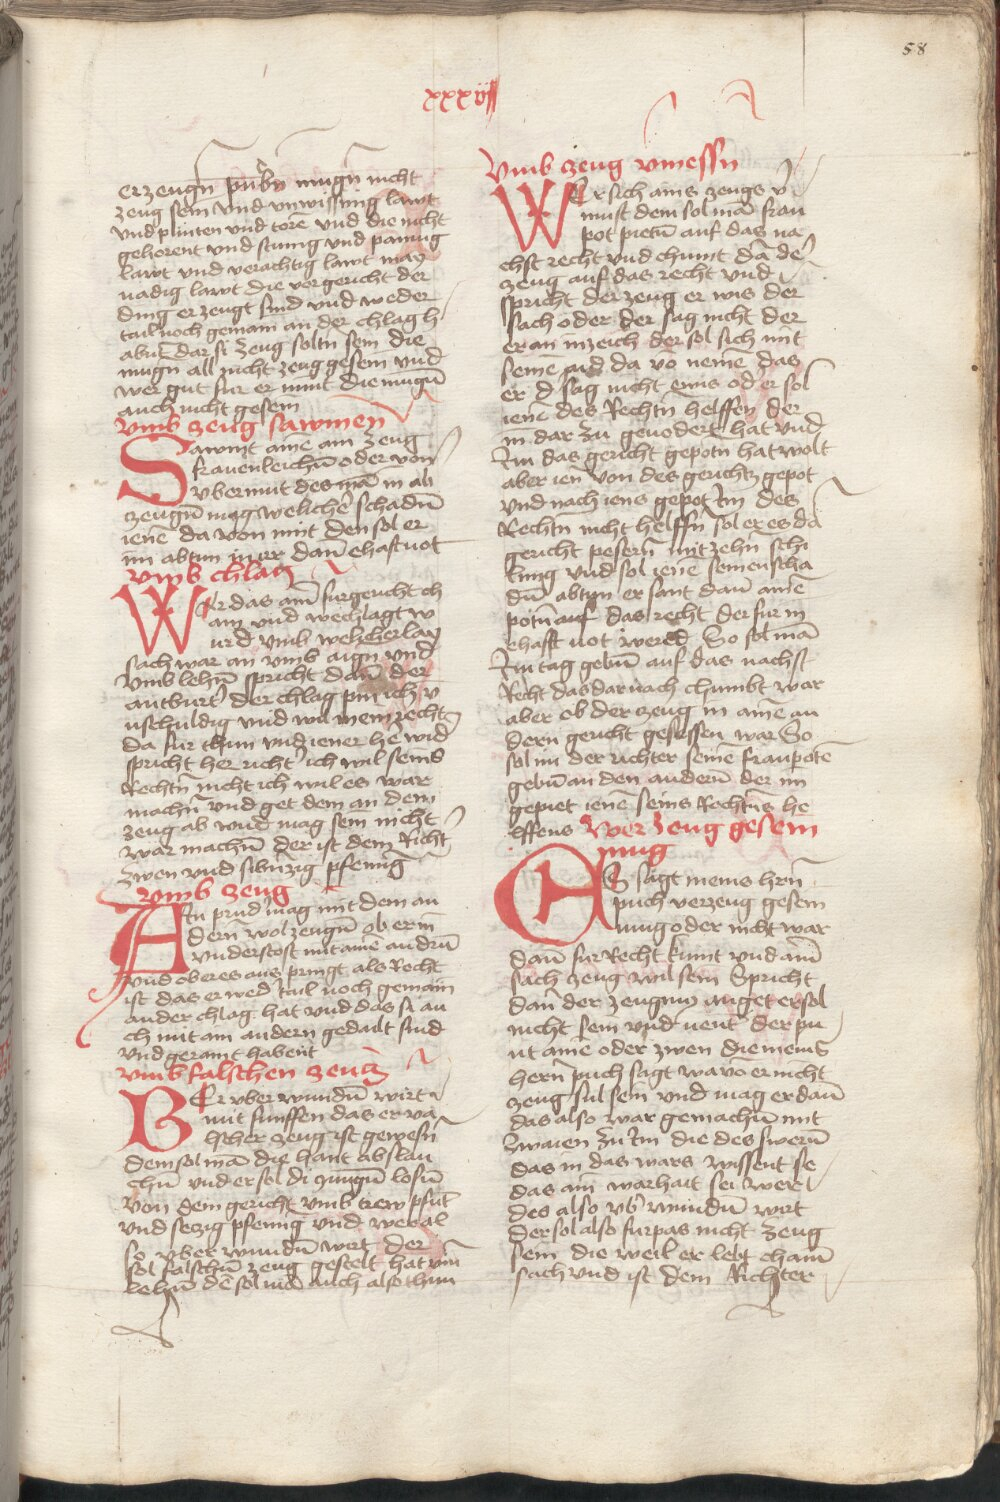 58
xxxvij
erzeugn pub̄n mugn nicht
zeug sein vnd vnwissing lawt
vnd plinten vnd torē vnd die nicht
gehorent vnd stumig vnd pannig
lawt vnd verachtig lawt may
nadig lawt die vor gericht der
ding erzeugt sind vnd weder
tail noch gemain an der chlag h
abnt dar si zeug soltn sein die
mugn all nicht zeug gesein vnd
wer gut fur er nimt die mugn̄
auch nicht gesein
vmb zeug sawmen
Sawmt aine ain zeug
frauenleichn̄ oder von
vbermut des mā in ab
zeugn̄ mag welichē schadn̄
ienē da von nimt den sol er
im abtun in irr dan̄ ehaft not
vmb chlag
Wer das am̄ fur gericht ch
am vnd wechlagt w
urd vmb welicherlay
sach war an vmb aign vnd
vmb lehn̄ spricht dan̄ der
antburt̄ der chlag pin ich v
nschuldig vnd wil mein recht
da fur thun vnd iener he wid
spricht her richt̄ ich wil seins
Rechtn̄ nicht ich wil es war
machn̄ vnd get dem an dem
zeug ab vnd mag sein nicht
war machn̄ der ist dem Richt
zwen vnd sibnzig pfennig
vmb zeug
Ain prud mag mit dem an
dern̄ wol zeugn̄ ob er in
vnderstost mit aine andrn̄
vnd ob er es aus pringt als Recht
ist das er wed̄ tail noch gemain
an der chlag hat vnd das si au
ch mit ain andern gedailt sind
vnd geraint habent
vmb falschen zeug
Ber vber wundn̄ wirt
mit funffen das er va
lscher zeug ist gewesn̄
dem sol mā die hant abslau
chn̄ vnd er sol di zungn̄ losn̄
von dem gericht vmb trew pfut̄
vnd seczig pfennig vnd wer al
so vber wundn̄ wirt der
sol falschn̄ zeug gestelt hat vm̄
lehn̄ dē sol mā auch also thun
vmb zeug vmessn
Wer sich ains zeugs v̄
must dem sol mā fran
pot pietn̄ auf das na
chst recht vnd chumt dā de
zeug auf das recht vnd
spricht der zeug er wis der
sach oder der sag nicht der
er an inzeich der sol sich mit
seinē aid da vō nemē das
er d̄ sag nicht enwis od er sol
ienē des Rechtn̄ helffen der
in dar zu geuodert hat vnd
Im das gericht gepotn hat wolt
aber ien von des gerichtz gepot
vnd nach iens gepot im des
Rechtn nicht helffn̄ sol er es dā
gericht pesern̄ mit zehn schi
lling vnd sol ienē seinen scha
dn̄ abtun er sant dan̄ ainē
potn̄ auf das recht der fur in
ehafft not bered So sol mā
Im tag gebn̄ auf das nachst
Recht das dar nach chumbt war
aber ob der zeug in ainē an
dern gericht gesessen war So
sol im der richter seinē franpotē
gebn̄ an den andern̄ der im
gepiet ienē seins Rechtn̄s he
lffens Wer zeug gesein
mug
Es sagt meins hrn̄
puch wer zeug gesein
mug oder nicht war
dan̄ fur Recht kumt vnd am̄
sach zeug wil sein Spricht
dan̄ der zeugnuz anget er sol
nicht sein vnd nent der pu
ut ainē oder zwen die meins
hern̄ puch sagt wavo er nicht
zeug sul sein vnd mag er dan̄
das also war gemachn̄ mit
zwaien zu im die des swern̄
das in das wars wissent se
das ain warhait sei wer
des also vb̄ wundn̄ wirt
der sol also furpas nicht zeug
sein die weil er lebt ehain̄
sach vnd ist dem Richter